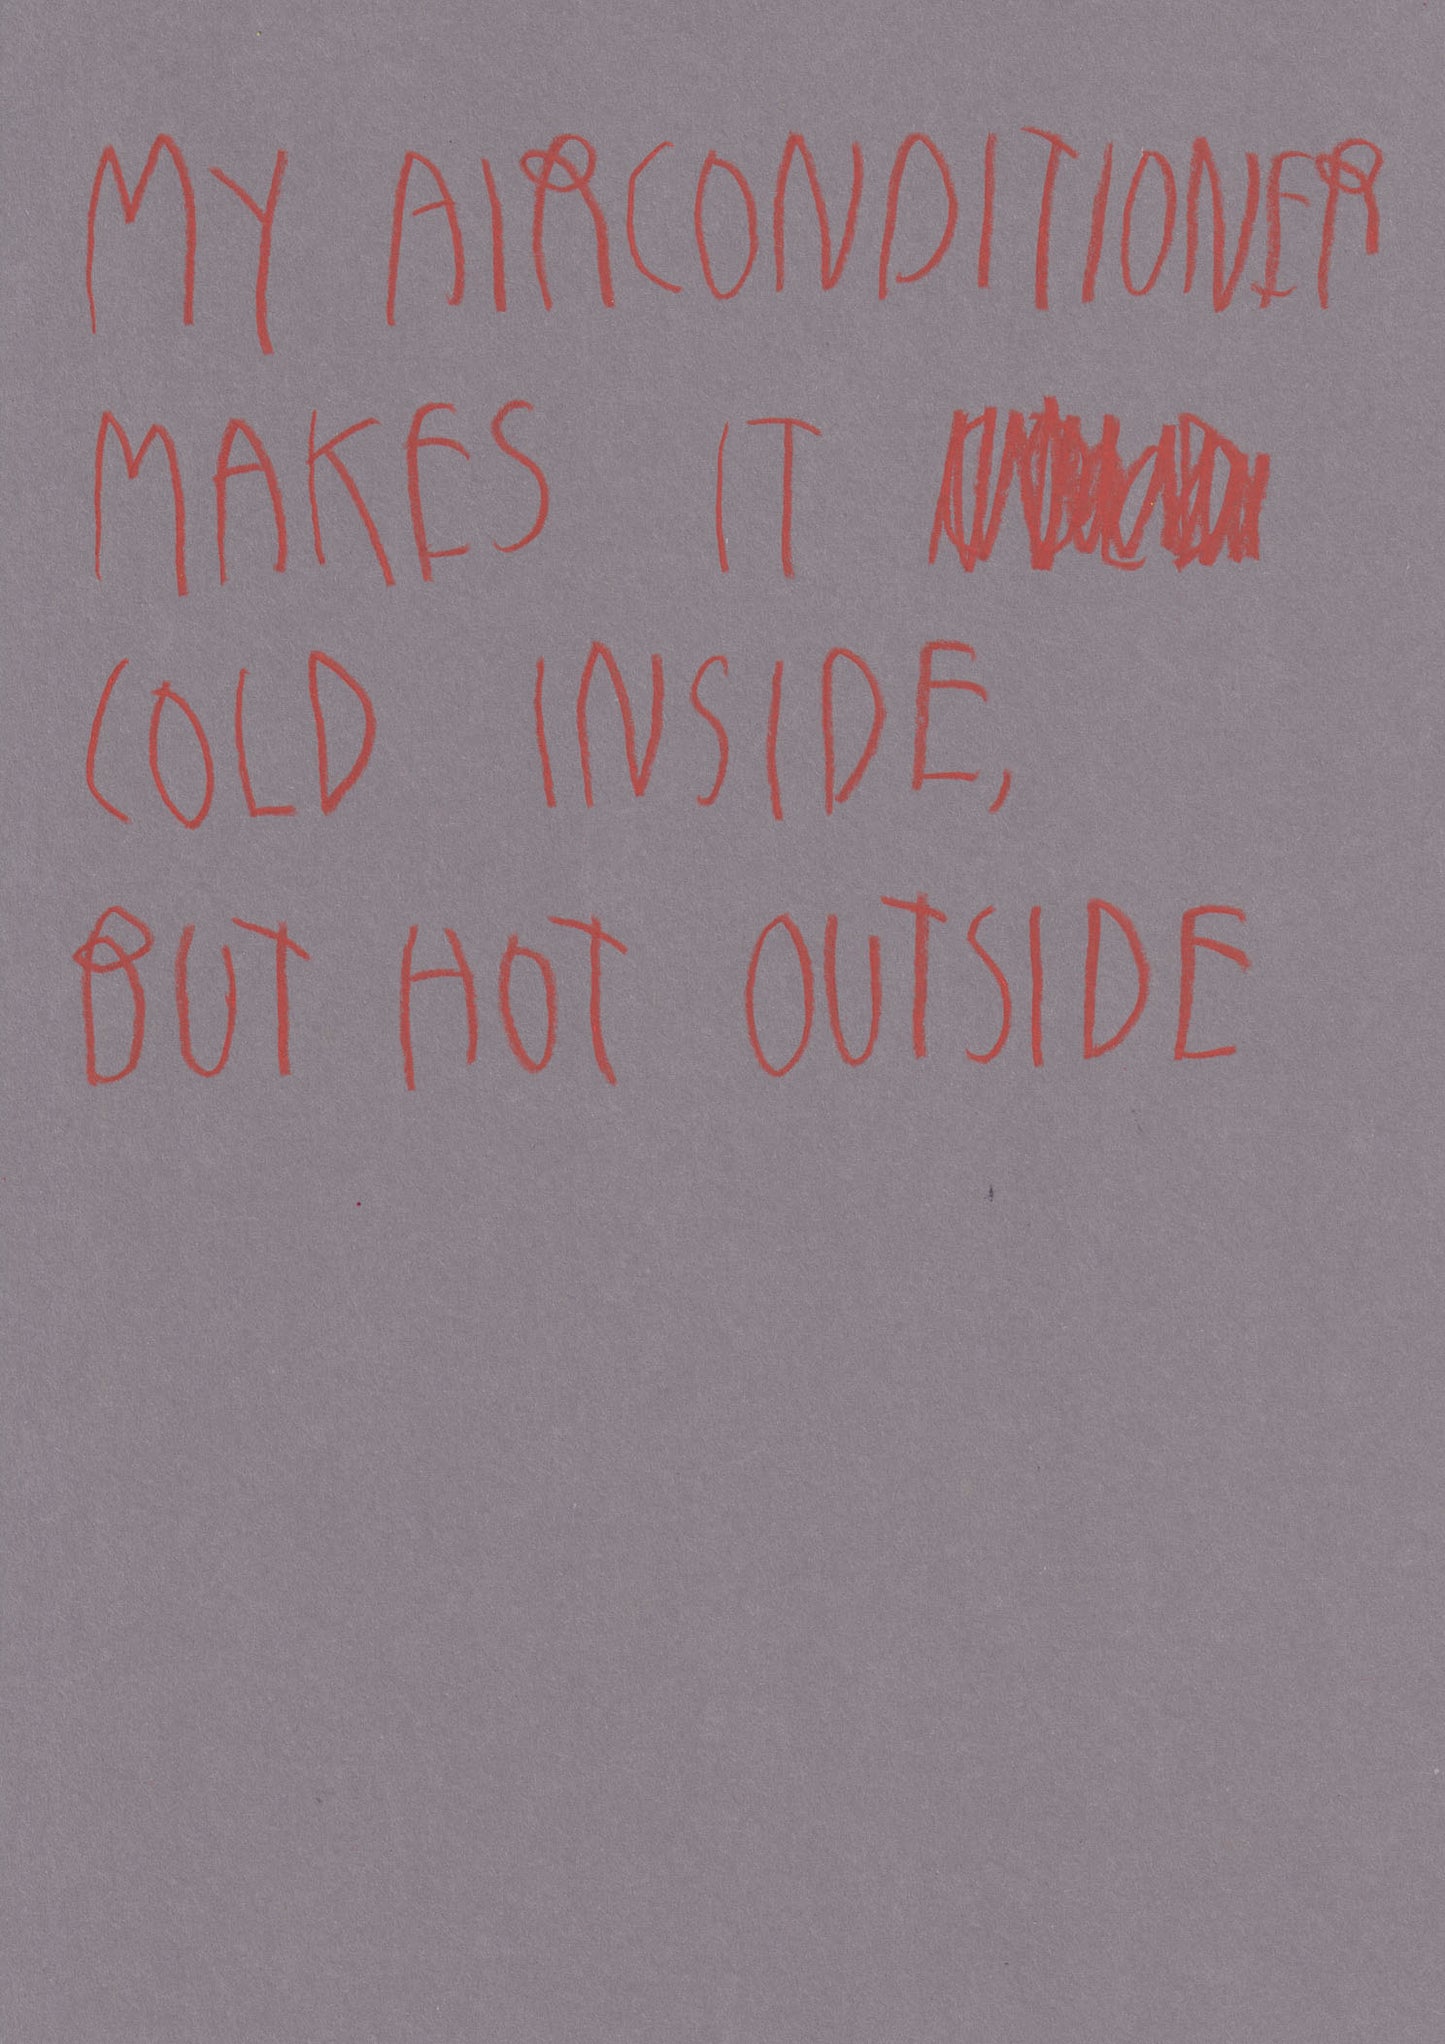 MY AIRCONDITIONER
MAKES IT
COLD INSIDE,
BUT HOT OUTSIDE